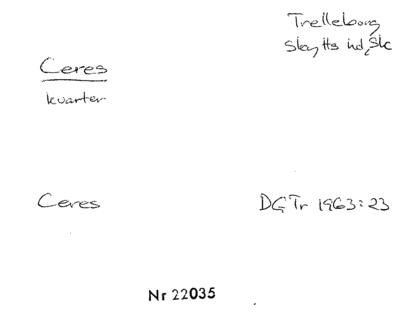 Trelleborg
Skytts hd, Sk
Ceres
kvarter
Ceres
DGTr 1963:23
Nr 22035